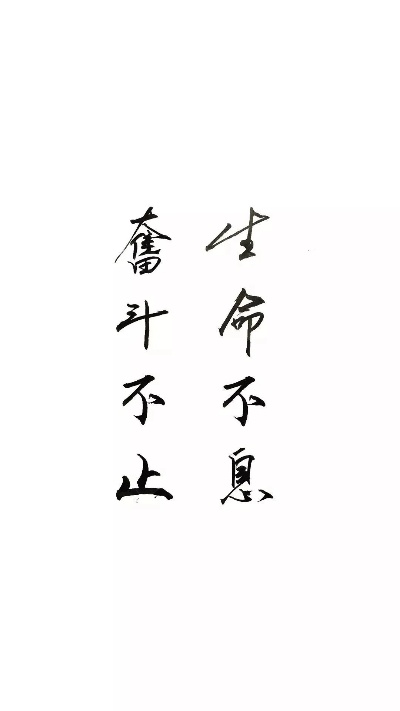 生命不息
奮斗不止